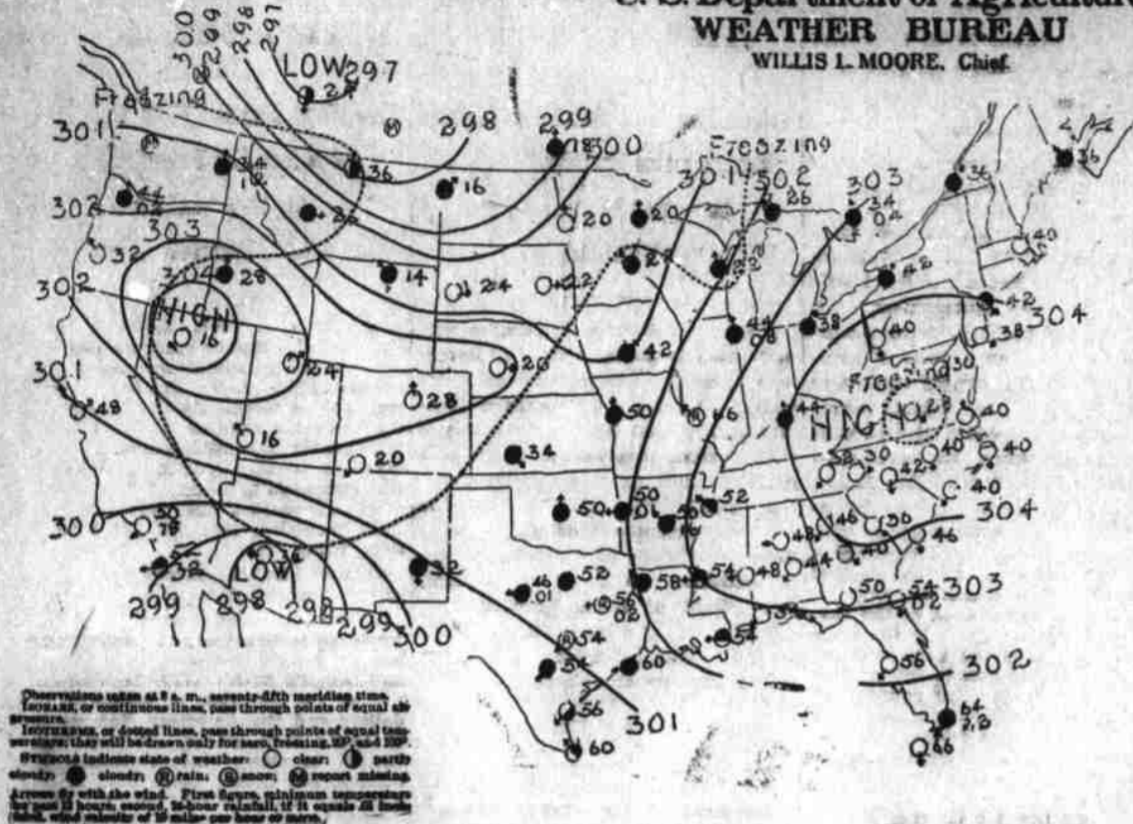 U. S. Department of Agriculture
WEATHER BUREAU
WILLIS L. MOORE, Chief.
300 299 298 297
LOW 297
Freezing
301
298
299
300
Freezing
301
302
303
302
303
304
HIGH
302
301
300
LOW
299
298
298
299
300
301
302
303
304
HIGH
Freezing
304
36
16
18
20
20
26
34
04
36
36
40
32
28
14
24
22
42
42
40
38
44
08
38
16
24
20
42
28
50
66
44
30
40
40
40
48
16
20
34
52
30
42
40
50
50
50
52
46
48
44
40
30
46
32
46
01
52
56
02
58
54
48
50
54
02
54
54
60
54
56
60
56
64
66
Observations taken at 8 a. m., seventy-fifth meridian time.
ISOBARS, or continuous lines, pass through points of equal air
pressure.
ISOTHERMS, or dotted lines, pass through points of equal tem-
perature; they will be drawn only for zero, freezing, 90°, and 100°.
SYMBOLS indicate state of weather: clear; partly
cloudy; cloudy; R rain; S snow; M report missing.
Arrows fly with the wind. First figure, minimum temperature
for past 12 hours; second, 24-hour rainfall, if it equals .01 inch;
third, wind velocity of 10 miles per hour or more.